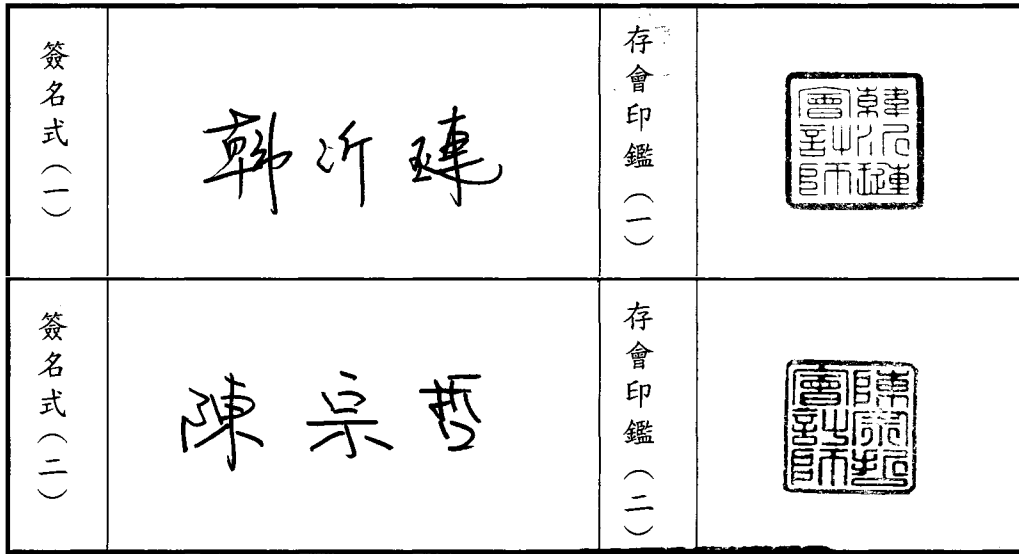 簽名式（一）
韓沂璉
存會印鑑（一）
韓沂璉會計師
簽名式（二）
陳宗哲
存會印鑑（二）
陳宗哲會計師